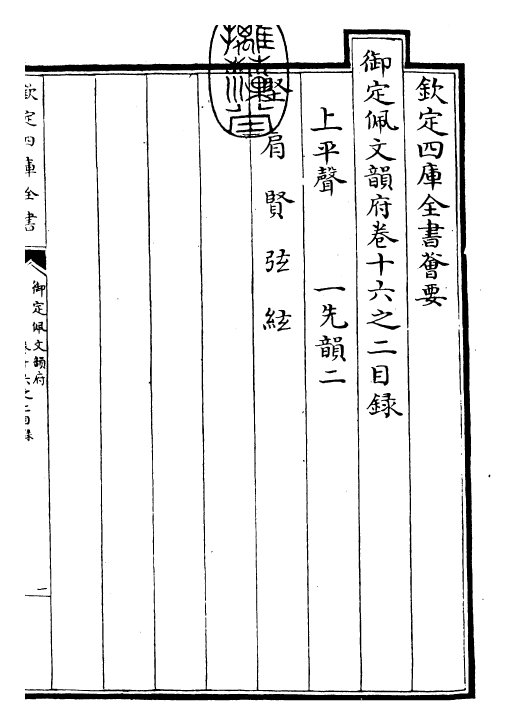 欽定四庫全書薈要
御定佩文韻府卷十六之二目録
上平聲　一先韻二
堅　肩　賢　弦　絃
欽定四庫全書
御定佩文韻府
卷十六之二目録
一